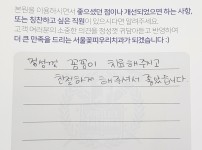 본원을 이용하시면서 좋으셨던 점이나 개선되었으면 하는 사항,
또는 칭찬하고 싶은 직원이 있으시다면 알려주세요.
고객 여러분의 소중한 의견을 정성껏 귀담아듣고 반영하여
더 큰 만족을 드리는 서울꽃피우리치과가 되겠습니다 :)
정성껏 꼼꼼히 치료해주시고
친절하게 해주셔서 좋았습니다